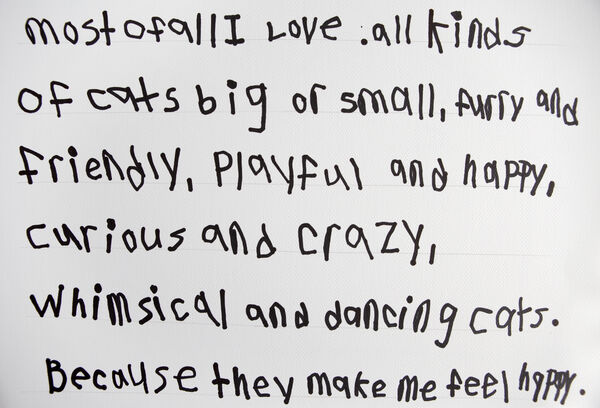 mostofall I Love .all kinds
of cats big or small, furry and
friendly, Playful and happy,
curious and crazy,
whimsical and dancing cats.
Because they make me feel happy.